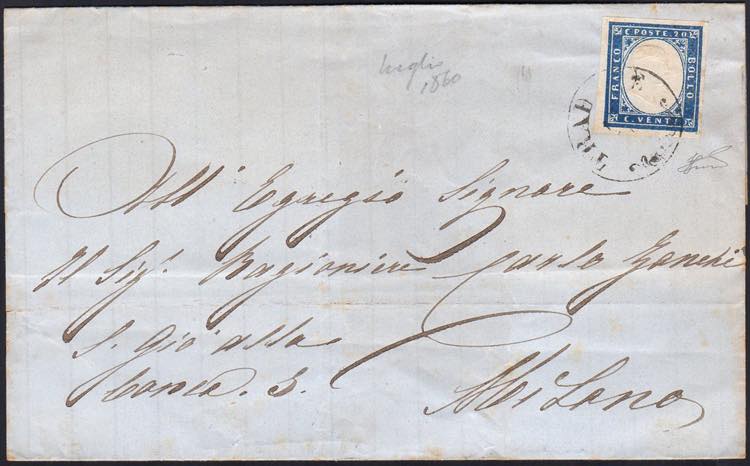 luglio
1860
C POSTE 20
FRANCO
BOLLO
C. VENTI
TRAD
All' Egregio Signore
Il Sig.r Ragioniere Carlo
S. Gio alla
Conca. 3.
Milano